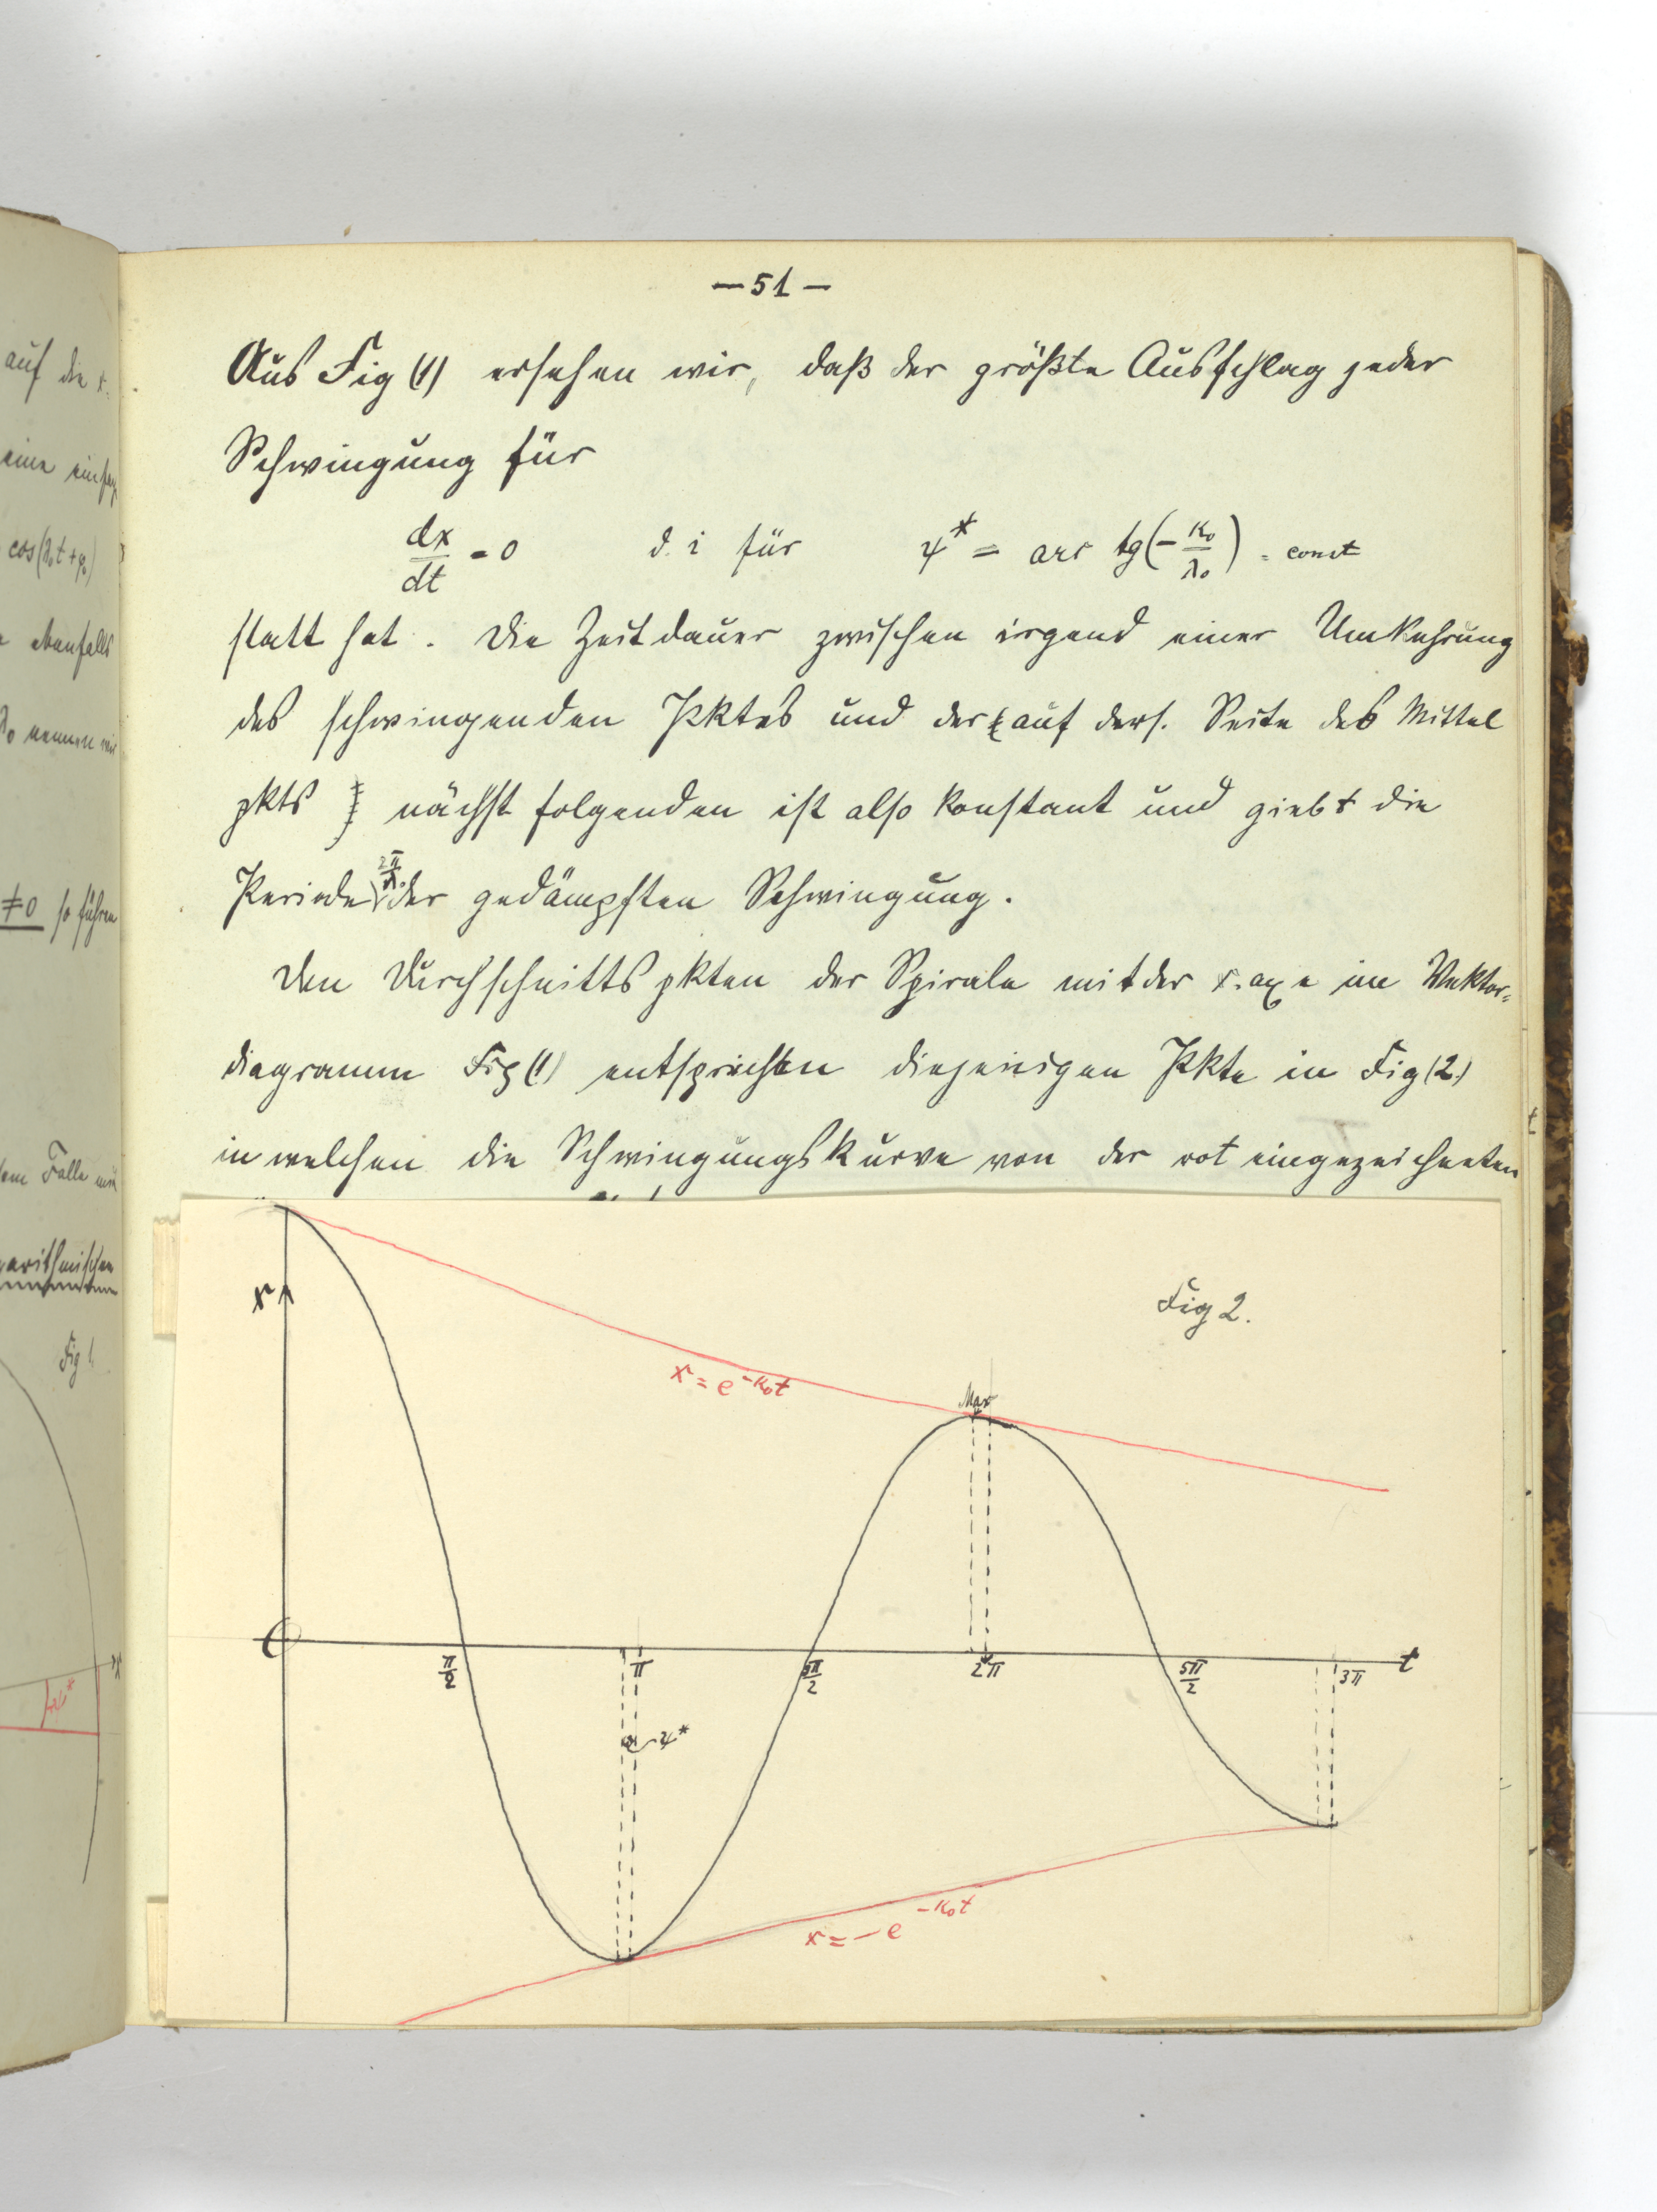 — 51 —
Aus Fig (1) ersehen wir, daß der größte Ausschlag jeder
Schwingung für
dx/dt = 0 d. i für ψ* = arc tg(- κ₀/λ₀) = const
statt hat. Die Zeitdauer zwischen irgend einer Umkehrung
des schwingenden Pktes und der auf ders. Seite des Mittel
pkts nächst folgenden ist also konstant und giebt die
Periode 2π/λ₀ der gedämpften Schwingung.
Den Durchschnittspkten der Spirale mit der x. axe im Vektor-
diagramm Fig (1) entsprechen diejenigen Pkte in Fig (2)
in welchen die Schwingungskurve von der rot eingezeichneten
Fig 2.
x
x = e^-κ₀t
Max
π/2 π 3π/2 2π 5π/2 3π t
ψ*
x = - e^-κ₀t
auf die x.
eine
cos(λ₀t+φ₀)
ebenfalls
nennen wir
≠0 so führen
Falle
Fig 1
x
ψ*